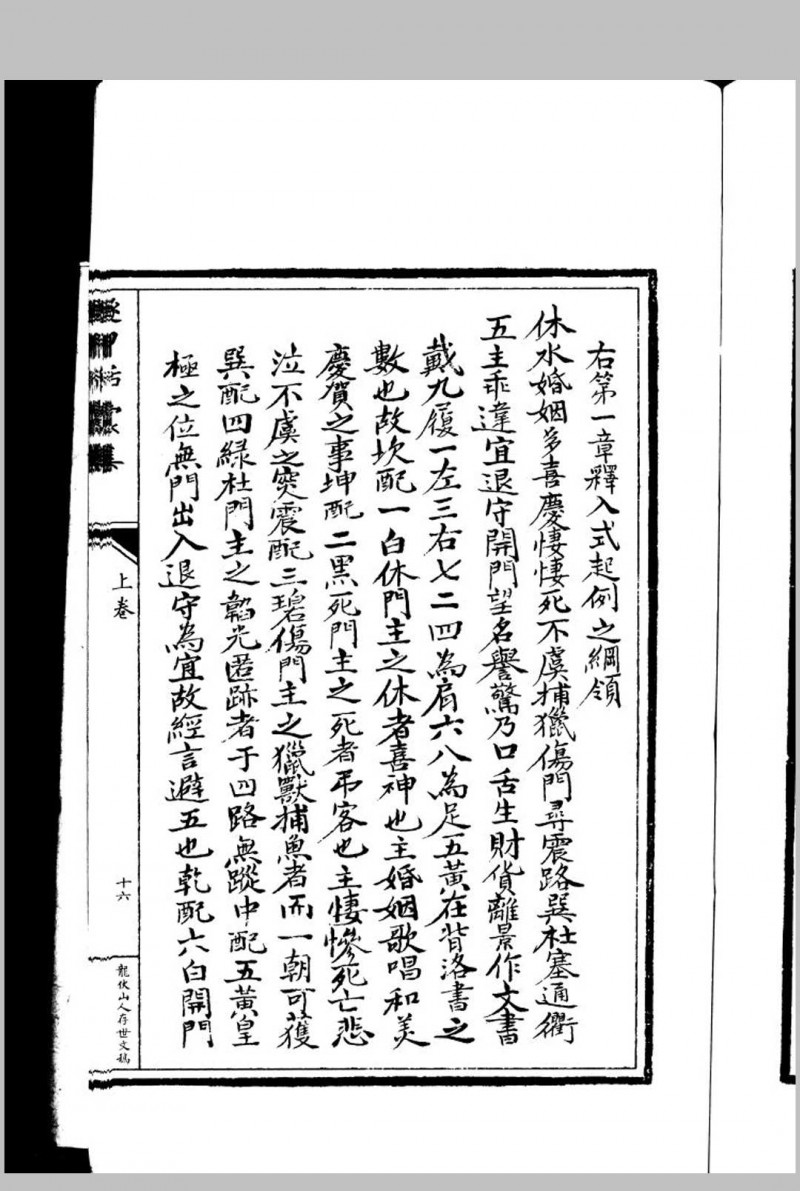 右第一章釋入式起例之綱領
休水婚姻多喜慶悽悽死不虞捕獵傷門尋震路巽杜塞通衢
五主乖違宜退守開門望名譽驚乃口舌生財貨離景作文書
戴九履一左三右七二四為肩六八為足五黃在背洛書之
數也故坎配一白休門主之休者喜神也主婚姻歌唱和美
慶賀之事坤配二黑死門主之死者吊客也主悽慘死亡悲
泣不虞之災震配三碧傷門主之獵獸捕魚者而一朝可獲
巽配四綠杜門主之韜光匿跡者于四路無蹤中配五黃皇
極之位無門出入退守為宜故經言避五也乾配六白開門
上卷
十六
龍伏山人存世文稿